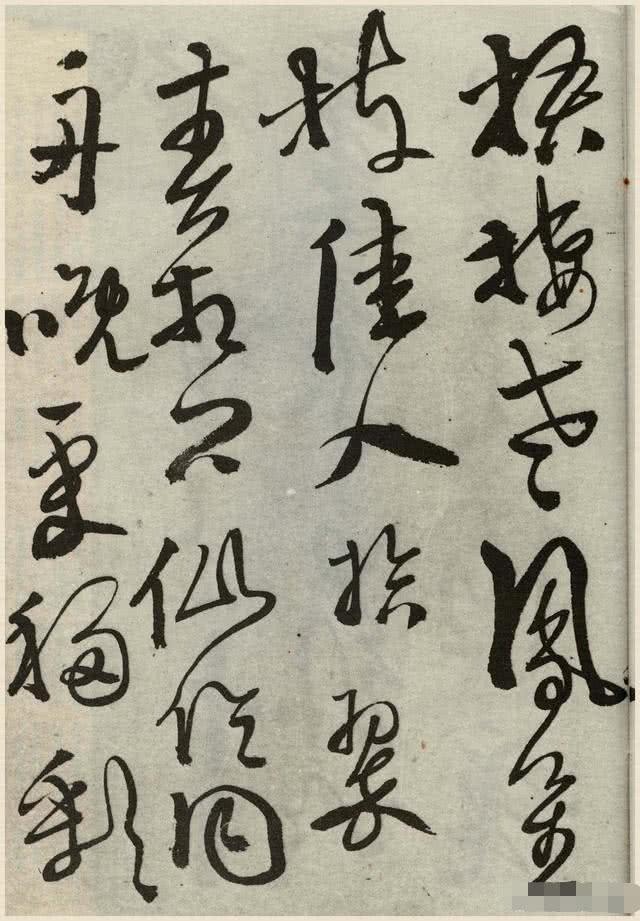 梧棲老鳳凰
枝佳人拾翠
春相問仙侶同
舟晚更移彩